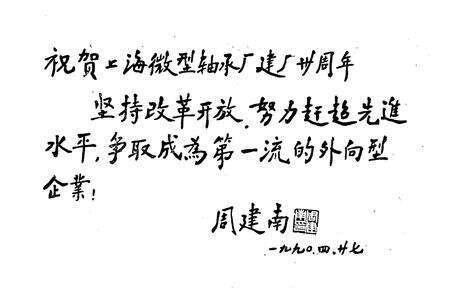 祝贺上海微型轴承厂建厂卅周年
坚持改革开放,努力赶超先進
水平,争取成為第一流的外向型
企業!
周建南
一九九〇.四.廿七